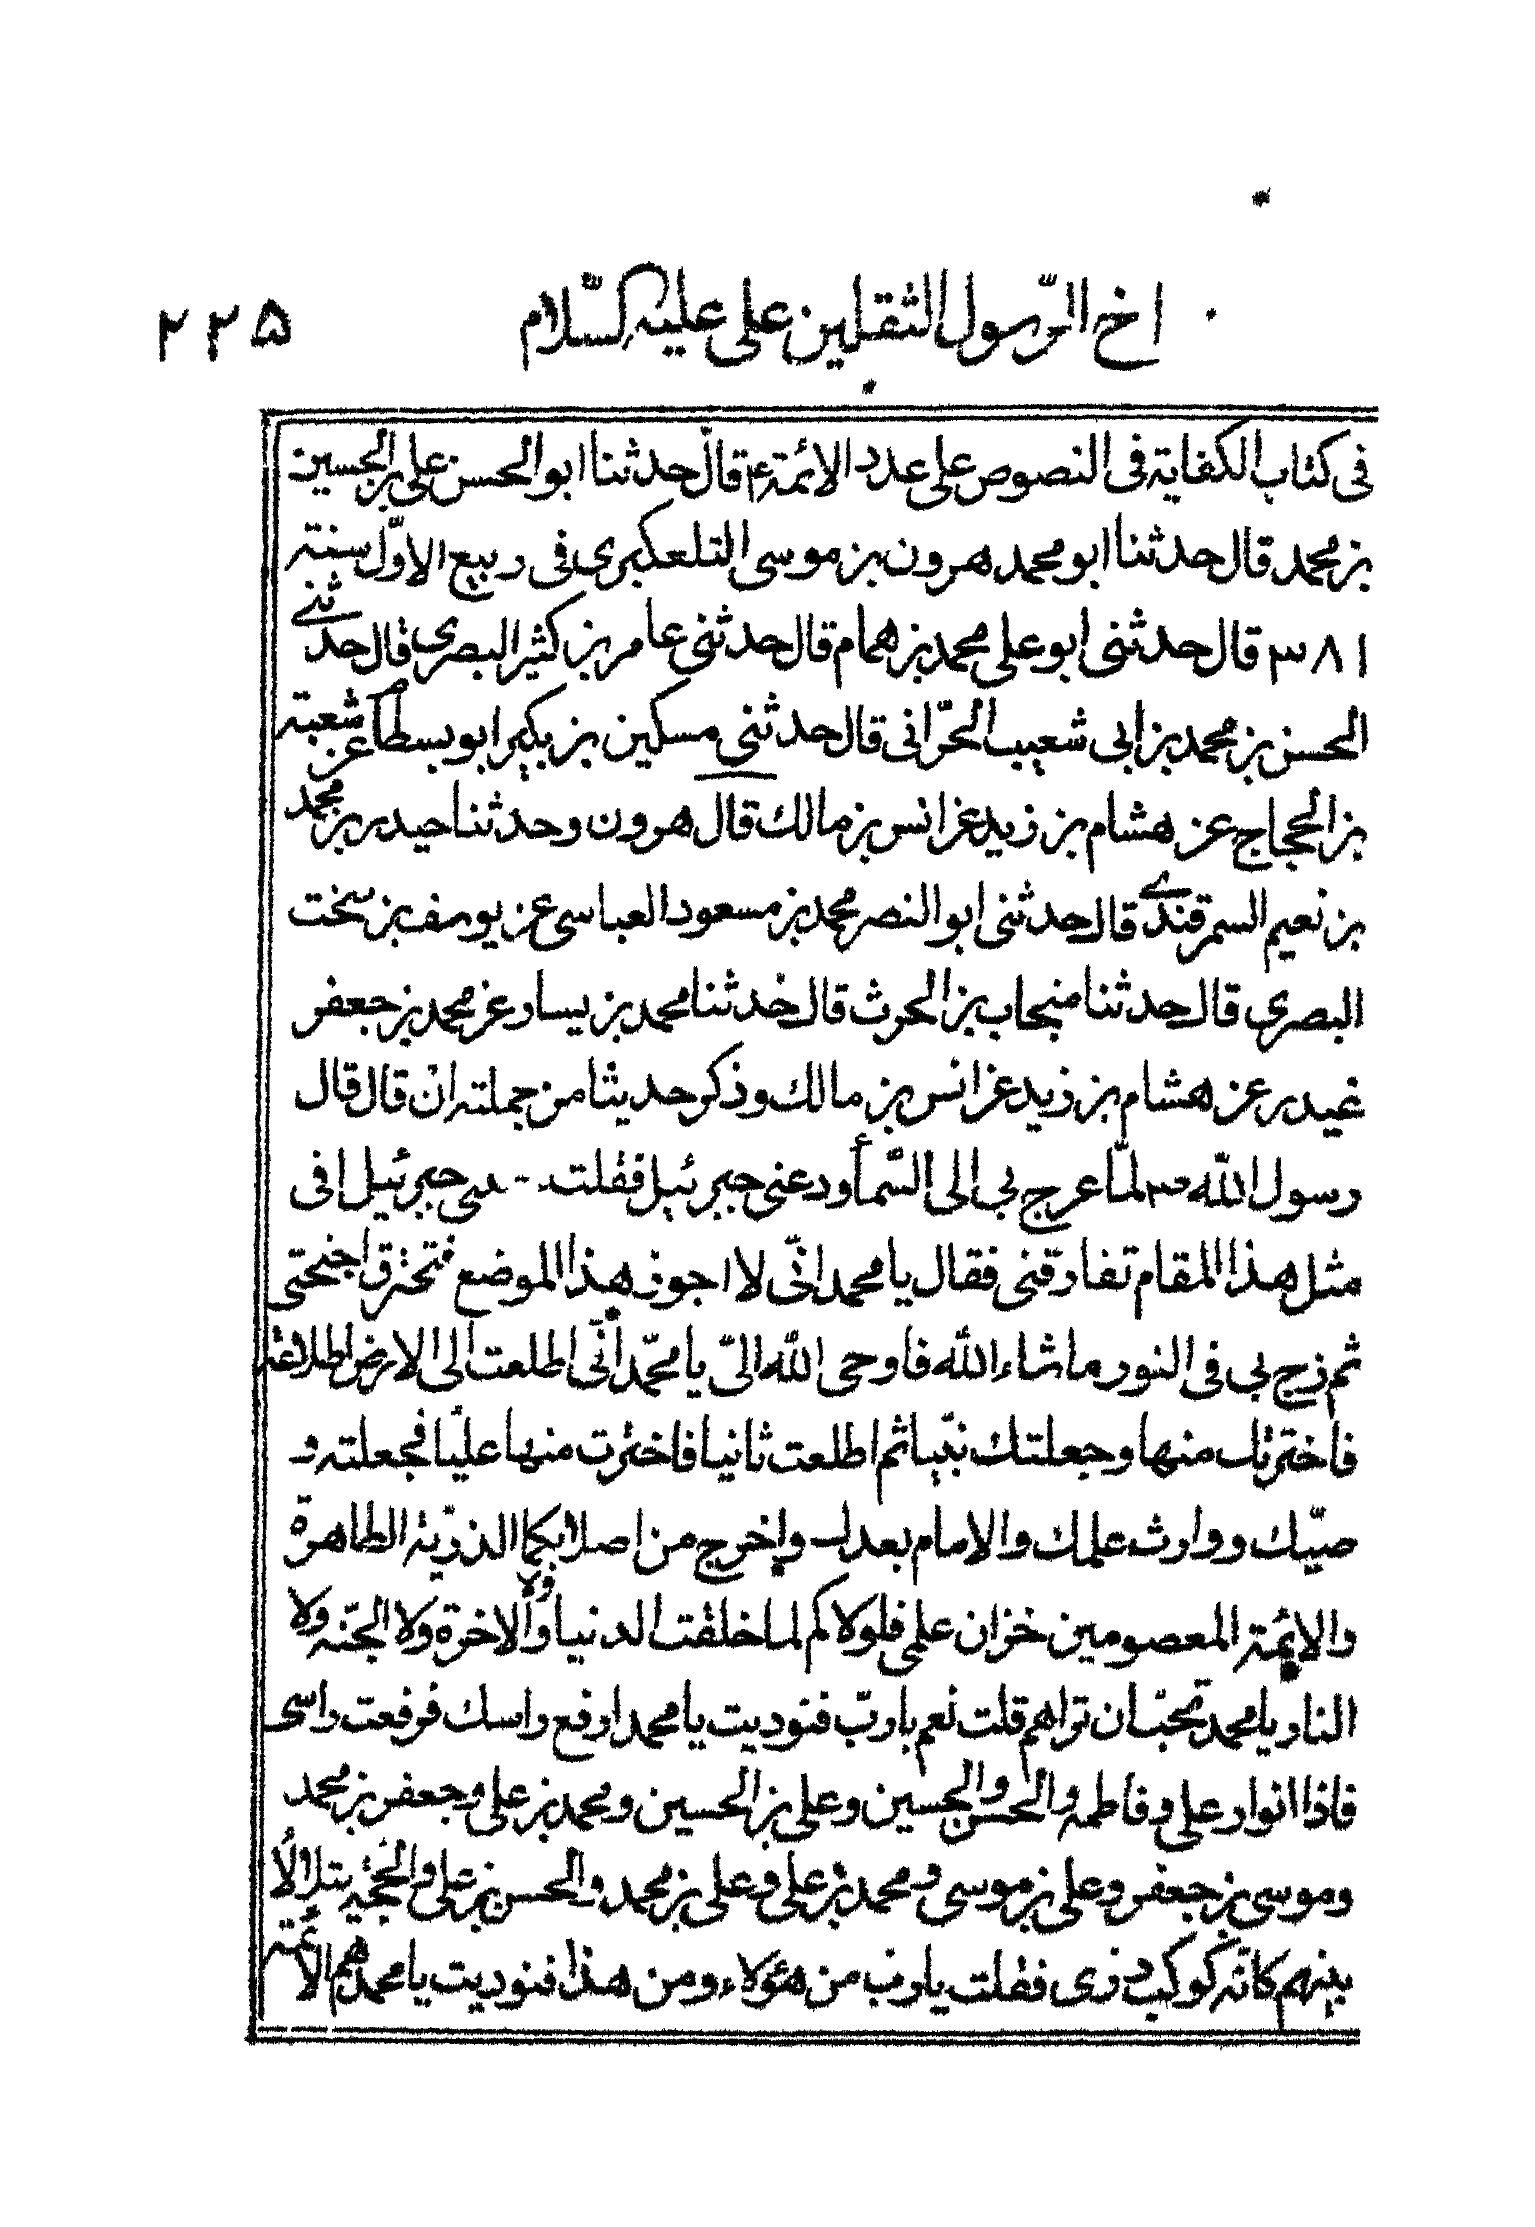 اخ الرّسول الثقلين على عليه السّلام ٢٢٥
فى كتاب الكفاية فى النصوص على عدد الائمة ع قال حدثنا ابو الحسن على بن الحسين
بن محمد قال حدثنا ابو محمد هرون بن موسى التلعكبرى فى ربيع الاوّل سنة
٣٨١ قال حدثنى ابو على محمد بن همام قال حدثنى عامر بن كثير البصرى قال حدثنى
الحسن بن محمد بن ابى شعيب الحرّانى قال حدثنى مسكين بن بكير ابو بسطام عن شعبة
بن الحجاج عن هشام بن زيد عن انس بن مالك قال هرون وحدثنا حيدر بن محمد
بن نعيم السمرقندے قال حدثنى ابو النصر محمد بن مسعود العباسى عن يوسف بن سخت
البصرى قال حدثنا منجاب بن الحرث قال حدثنا محمد بن يسار عن محمد بن جعفر
غيدر عن هشام بن زيد عن انس بن مالك وذكر حديثا من جملته ان قال قال
رسول اللّه ص لمّا عرج بى الى السّمأ ودعنى جبرئيل فقلت جبرئيل افى
مثل هذا المقام تفارقنى فقال يا محمد انّى لا اجوز هذا الموضع فتحترق اجنحتى
ثم زج بى فى النور ما شاء اللّه فاوحى اللّه الىّ يا محمّد انّى اطلعت الى الارض اطلاعة
فاخترتك منها وجعلتك نبّيا ثم اطلعت ثانيا فاخترت منها عليّا فجعلته و
صيّك ووارث علمك والامام بعدك واخرج من اصلابكما الذرّية الطاهرة
والائمة المعصومين خزان علمى فلولاكم لما خلقت الدنيا ولا الاخرة ولا الجنّه ولا
النار يا محمد تحبّ ان تراهم قلت نعم يا ربّ فنوديت يا محمد ارفع راسك فرفعت راسى
فاذا انوار على وفاطمه والحسن والحسين وعلى بن الحسين ومحمد بن على وجعفر بن محمد
وموسى بن جعفر وعلى بن موسى ومحمد بن على وعلى بن محمد والحسن بن على والحجّة يتلألأ
بينهم كانّه كوكب درى فقلت يا رب من هؤلاء ومن هذا فنوديت يا محمد هم الائمة